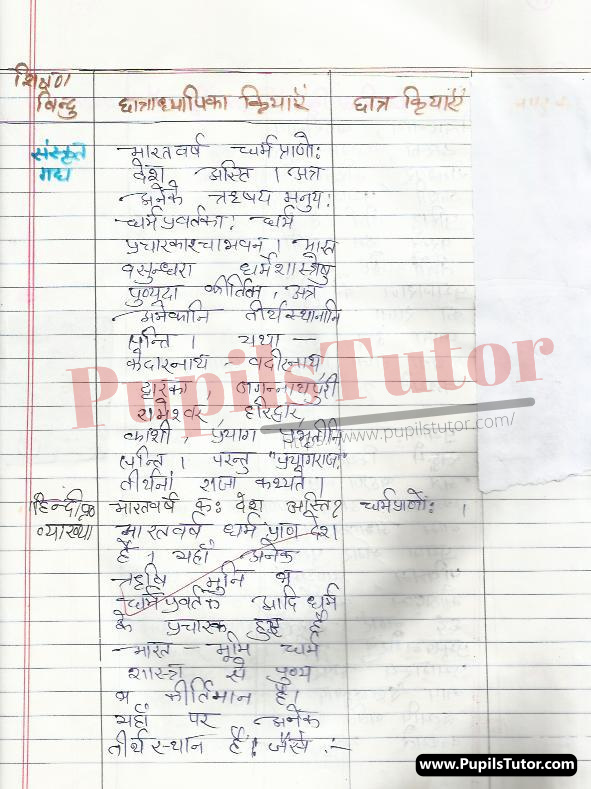 शिक्षण
बिन्दु छात्राध्यापिका क्रियाएँ छात्र क्रियाएँ
संस्कृत भारतवर्ष धर्म प्राणोः
गद्य देश अस्ति । अत्र
अनेके ऋषय मनुयः
धर्मप्रवर्तकाः धर्म
प्रचारकाश्चाभवन । भारत
वसुन्धरा धर्मशास्त्रेषु
पुण्यदा कीर्तिता, अत्र
अनेकानि तीर्थस्थानानि
सन्ति । यथा —
केदारनाथ - बदीरनाथ
द्वारका, जगन्नाथपुरी
रामेश्वर, हरिद्वार,
काशी, प्रयाग प्रभृतीनि
सन्ति । परन्तु "प्रयागराजः"
तीर्थनां राजा कथ्यते ।
हिन्दी भारतवर्ष कः देश अस्ति? धर्मप्राणोः ।
व्याख्या भारतवर्ष धर्म प्राण देश
है । यहाँ अनेक
ऋषि मुनि व
धर्मप्रवर्तक आदि धर्म
के प्रचारक हुए है
भारत - भूमि धर्म
शास्त्र से पुण्य
व कीर्तिमान है।
यहाँ पर अनेक
तीर्थ स्थान हैं। जैसे :-
PupilsTutor
https://www.pupilstutor.com/
www.PupilsTutor.com